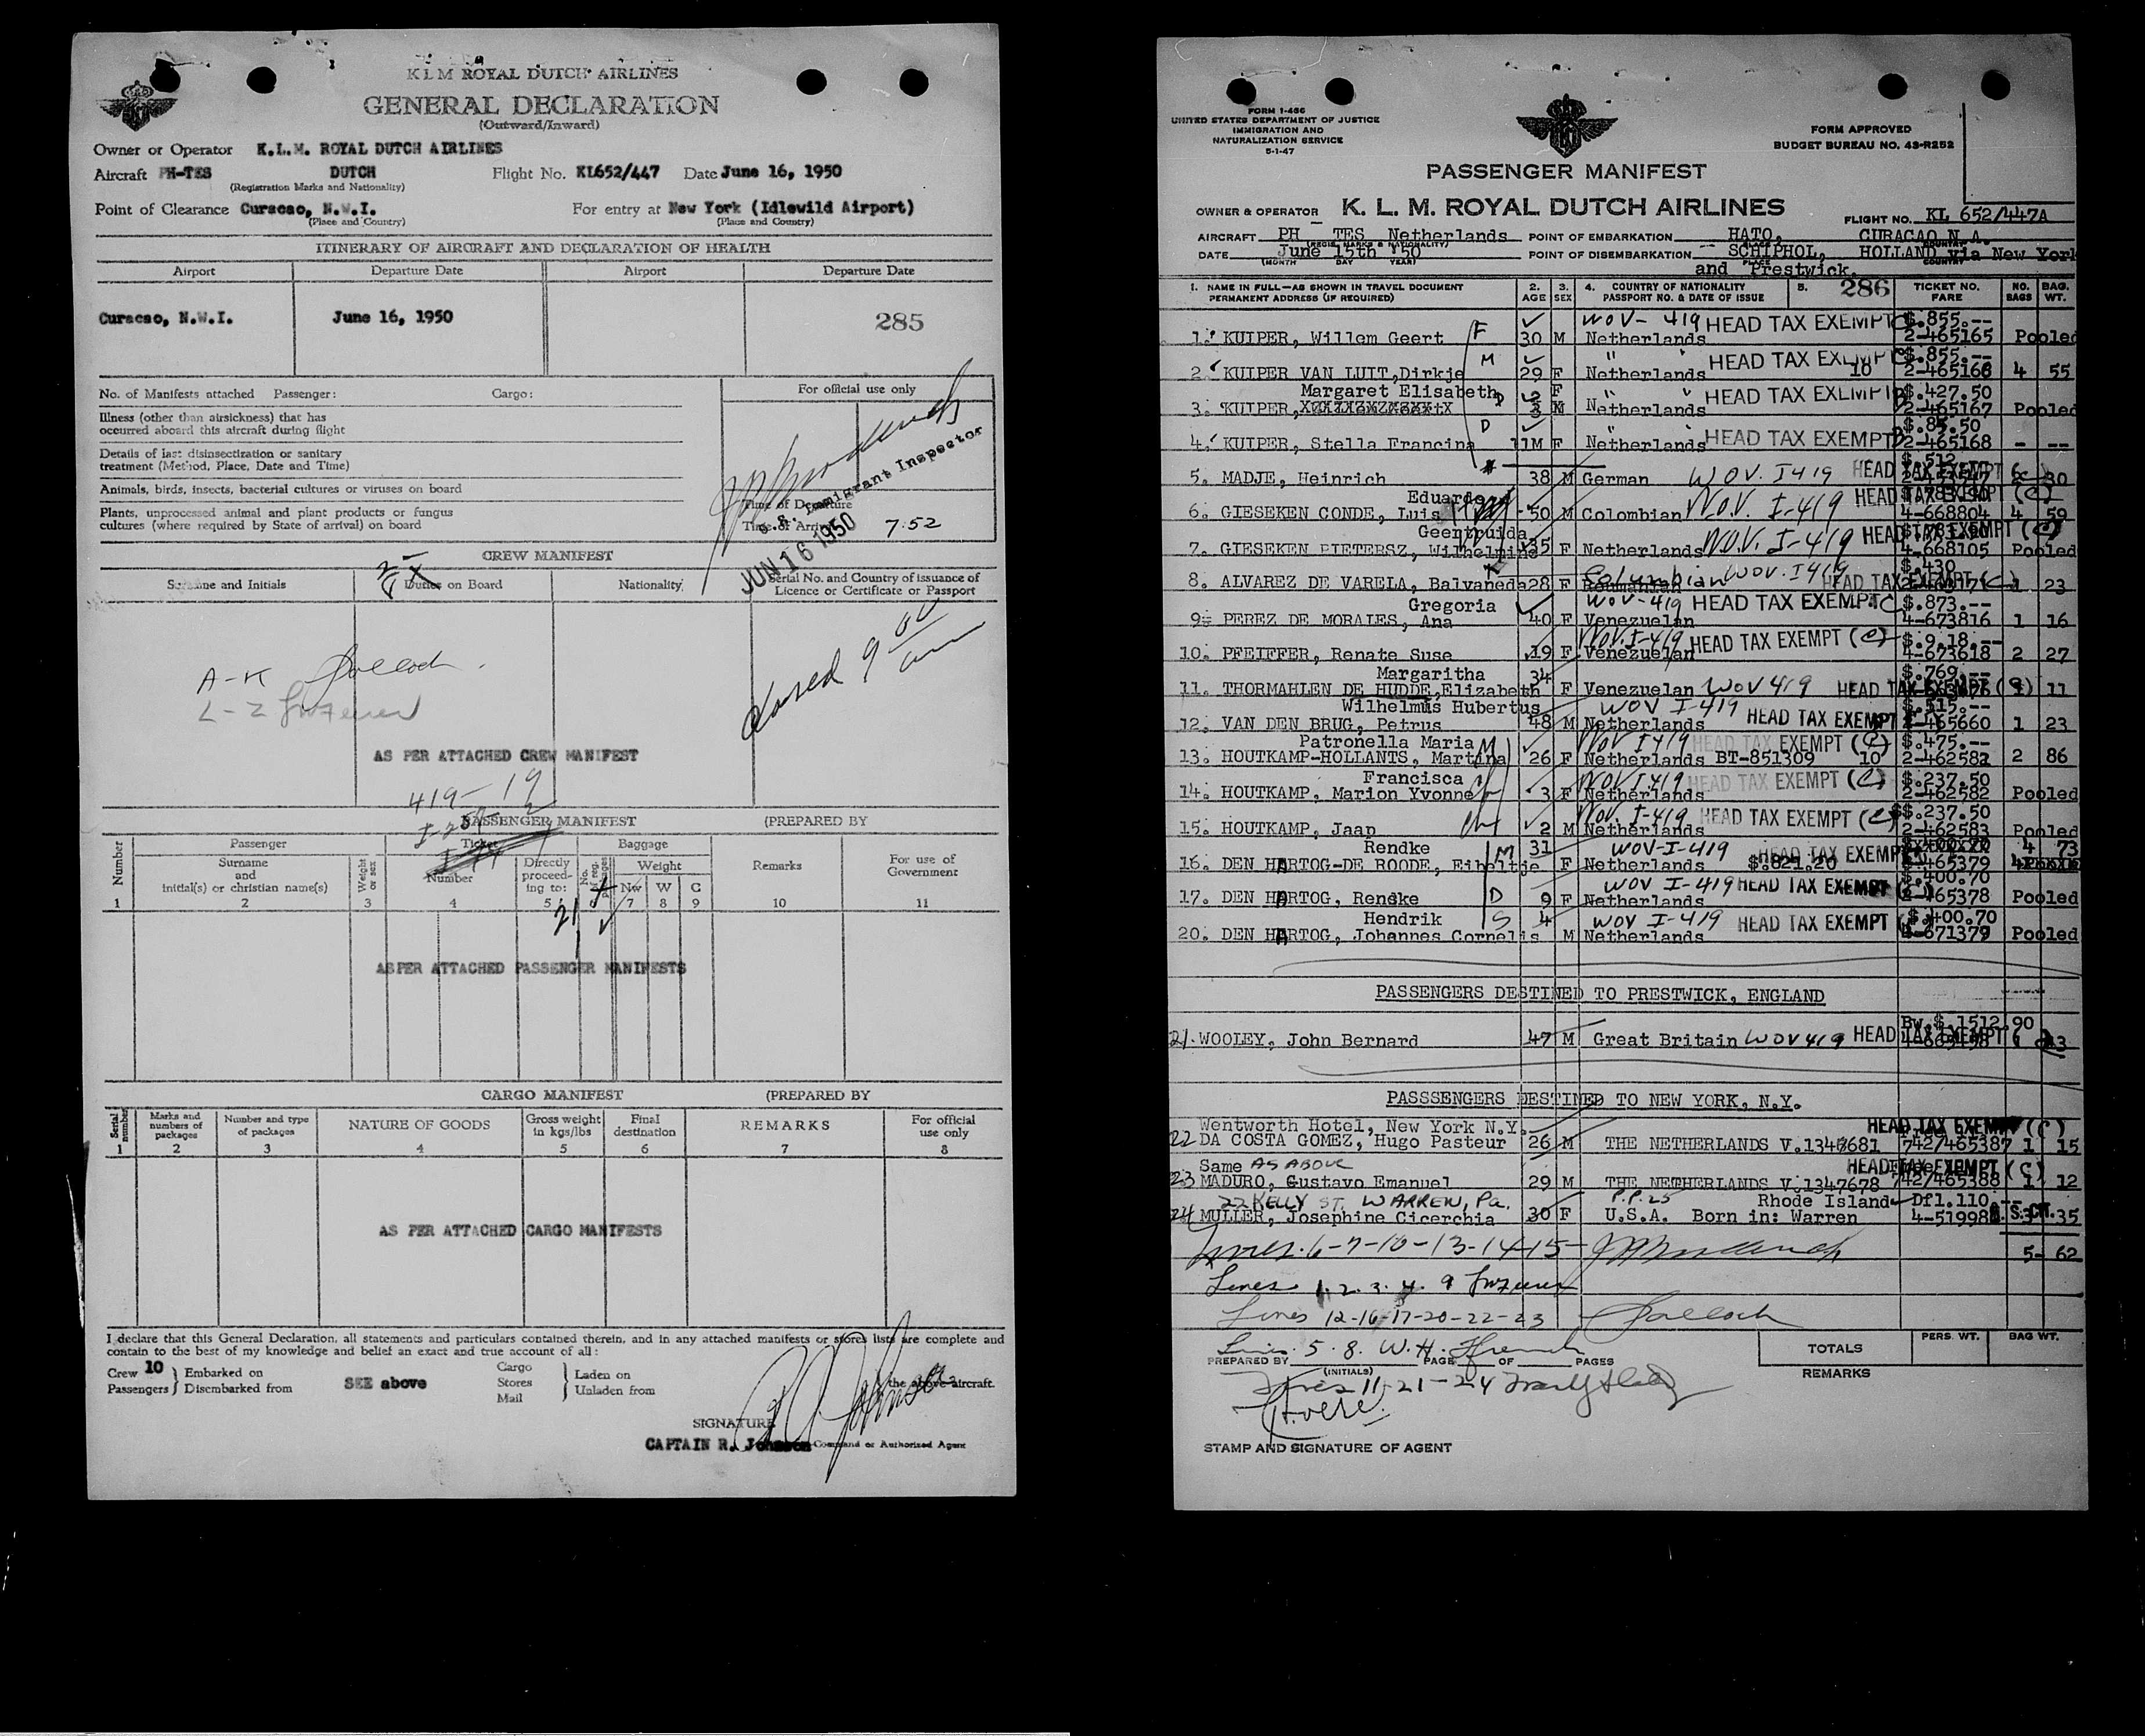 KLM ROYAL DUTCH AIRLINES
GENERAL DECLARATION
(Outward/Inward)
Owner or Operator K.L.M. ROYAL DUTCH AIRLINES
Aircraft PH-TES DUTCH Flight No. KL652/447 Date June 16, 1950
(Registration Marks and Nationality)
Point of Clearance Curacao, N.W.I. For entry at New York (Idlewild Airport)
(Place and Country) (Place and Country)
ITINERARY OF AIRCRAFT AND DECLARATION OF HEALTH
Airport Departure Date Airport Departure Date
Curacao, N.W.I. June 16, 1950 285
No. of Manifests attached Passenger: Cargo: For official use only
Illness (other than airsickness) that has
occurred aboard this aircraft during flight
Details of last disinsectization or sanitary
treatment (Method, Place, Date and Time)
Animals, birds, insects, bacterial cultures or viruses on board
Plants, unprocessed animal and plant products or fungus
cultures (where required by State of arrival) on board
Time of Departure
Time of Arrival 7:52
U.S. Immigrant Inspector
JUN 16 1950
CREW MANIFEST
Surname and Initials Duties on Board Nationality Serial No. and Country of issuance of
Licence or Certificate or Passport
A-K
L-Z
closed 9 00 am
AS PER ATTACHED CREW MANIFEST
419-19
PASSENGER MANIFEST (PREPARED BY
Number Passenger Ticket Baggage
Surname
and
initial(s) or christian name(s)
Weight or sex
Number
Directly
proceed-
ing to:
No. of reg. packages
Weight
Nw W C
Remarks
For use of
Government
1 2 3 4 5 7 8 9 10 11
21
AS PER ATTACHED PASSENGER MANIFESTS
CARGO MANIFEST (PREPARED BY
Serial number
Marks and
numbers of
packages
Number and type
of packages
NATURE OF GOODS
Gross weight
in kgs/lbs
Final
destination
REMARKS
For official
use only
1 2 3 4 5 6 7 8
AS PER ATTACHED CARGO MANIFESTS
I declare that this General Declaration, all statements and particulars contained therein, and in any attached manifests or stores lists are complete and
contain to the best of my knowledge and belief an exact and true account of all:
Crew 10 Embarked on Cargo Laden on
Passengers Disembarked from SEE above Stores Unladen from the above aircraft.
Mail
SIGNATURE
CAPTAIN R. Johnson Command or Authorized Agent
FORM I-466
UNITED STATES DEPARTMENT OF JUSTICE
IMMIGRATION AND
NATURALIZATION SERVICE
5-1-47
FORM APPROVED
BUDGET BUREAU NO. 43-R252
PASSENGER MANIFEST
OWNER & OPERATOR K. L. M. ROYAL DUTCH AIRLINES FLIGHT NO. KL 652/447A
AIRCRAFT PH - TES Netherlands POINT OF EMBARKATION HATO, CURACAO N.A.
DATE June 15th '50 POINT OF DISEMBARKATION SCHIPHOL, HOLLAND via New York
(MONTH DAY YEAR)
and Prestwick.
1. NAME IN FULL—AS SHOWN IN TRAVEL DOCUMENT 2. 3. 4. COUNTRY OF NATIONALITY 5. 286 TICKET NO. NO. BAG.
PERMANENT ADDRESS (IF REQUIRED) AGE SEX PASSPORT NO. & DATE OF ISSUE FARE BAGS WT.
WOV-419 HEAD TAX EXEMPT C $.855.--
1. KUIPER, Willem Geert F 30 M Netherlands 2-465165 Pooled
" " HEAD TAX EXEMPT C $.855.--
2. KUIPER VAN LUIT, Dirkje M 29 F Netherlands 10 2-465166 4 55
Margaret Elisabeth D F " " HEAD TAX EXEMPT $.427.50
3. KUIPER, 3 Netherlands 2-465167 Pooled
D " " HEAD TAX EXEMPT $.85.50
4. KUIPER, Stella Francina 11M F Netherlands 2-465168 - --
$.512
5. MADJE, Heinrich 38 M German WOV. I 419 HEAD TAX EXEMPT 30
Eduardo
6. GIESEKEN CONDE, Luis 50 M Colombian W.O.V. I-419 HEAD TAX EXEMPT (C) 4-668804 4 59
Geertruida
7. GIESEKEN PIETERSZ, Wilhelmina 35 F Netherlands W.O.V. I-419 HEAD TAX EXEMPT (C) 4-668105 Pooled
Columbian $.430
8. ALVAREZ DE VARELA, Balvaneda 28 F Roumanian WOV. I 419 HEAD TAX EXEMPT (C) 1 23
Gregoria WOV-419 HEAD TAX EXEMPT C $.873.--
9. PEREZ DE MORALES, Ana 40 F Venezuelan 4-673816 1 16
WOV. I-419 HEAD TAX EXEMPT (C) $.9.18.--
10. PFEIFFER, Renate Suse 19 F Venezuelan 4-673618 2 27
Margaritha 34 $.769.--
11. THORMAHLEN DE HUDDE, Elizabeth F Venezuelan WOV 419 HEAD TAX EXEMPT 1 11
Wilhelmus Hubertus WOV I-419 $.515.--
12. VAN DEN BRUG, Petrus 48 M Netherlands HEAD TAX EXEMPT 2-465660 1 23
Patronella Maria M WOV I 419 HEAD TAX EXEMPT (C) $.475.--
13. HOUTKAMP-HOLLANTS, Martina 26 F Netherlands BT-851309 10 2-462582 2 86
Francisca WOV I 419 HEAD TAX EXEMPT (C) $.237.50
14. HOUTKAMP, Marion Yvonne 3 F Netherlands 2-462582 Pooled
WOV. I-419 HEAD TAX EXEMPT (C) $$.237.50
15. HOUTKAMP, Jaap 2 M Netherlands 2-462583 Pooled
Rendke 31 WOV-I-419 HEAD TAX EXEMPT 4 73
16. DEN HARTOG-DE ROODE, Eibeltje M F Netherlands $.821.20 2-465379
WOV I-419 HEAD TAX EXEMPT $.400.70
17. DEN HARTOG, Rendke D 9 F Netherlands 2-465378 Pooled
Hendrik S 4 WOV I-419 HEAD TAX EXEMPT $.400.70
20. DEN HARTOG, Johannes Cornelis M Netherlands 2-671379 Pooled
PASSENGERS DESTINED TO PRESTWICK, ENGLAND
Bw.$.1512.90
21. WOOLEY, John Bernard 47 M Great Britain WOV 419 HEAD TAX EXEMPT
PASSSENGERS DESTINED TO NEW YORK, N.Y.
Wentworth Hotel, New York N.Y. HEAD TAX EXEMPT (C)
22 DA COSTA GOMEZ, Hugo Pasteur 26 M THE NETHERLANDS V.1347681 742/465387 1 15
Same AS ABOVE HEAD TAX EXEMPT (C)
23 MADURO, Gustavo Emanuel 29 M THE NETHERLANDS V.1347678 742/465388 1 12
22 KELLY ST. WARREN, Pa. P.P. 25 Rhode Island Dfl.110.--
24 MULLER, Josephine Cicerchia 30 F U.S.A. Born in: Warren 4-51998 U.S. CIT. 3 35
Lines 6-7-10-13-14-15- 5- 62
Lines 1. 2. 3. 4. 9
Lines 12-16-17-20-22-23
Lines 5. 8. W. H. French
PREPARED BY PAGE OF PAGES
(INITIALS)
TOTALS PERS. WT. BAG WT.
REMARKS
Lines 11-21-24
STAMP AND SIGNATURE OF AGENT